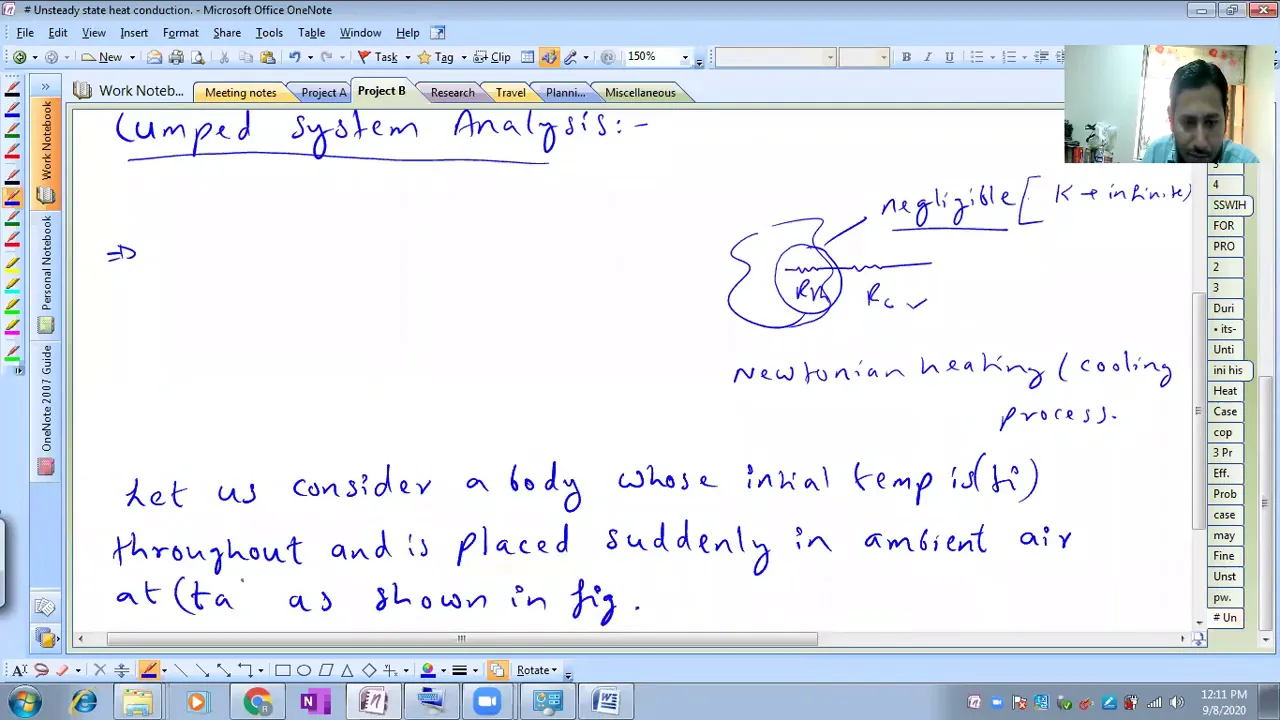 # Unsteady state heat conduction. - Microsoft Office OneNote
File Edit View Insert Format Share Tools Table Window Help
New Task Tag Clip 150% B I U
Work Noteb... Meeting notes Project A Project B Research Travel Planni... Miscellaneous
Work Notebook
Personal Notebook
OneNote 2007 Guide
Lumped system Analysis:-
negligible [ K → infinite)
⇒
Rc ✓
Newtonian heating ( cooling
process.
Let us consider a body whose initial temp is (ti)
throughout and is placed suddenly in ambient air
at (ta as shown in fig.
4
SSWIH
FOR
PRO
2
3
Duri
• its-
Unti
ini his
Heat
Case
cop
3 Pr
Eff.
Prob
case
may
Fine
Unst
pw.
# Un
Rotate
12:11 PM
9/8/2020